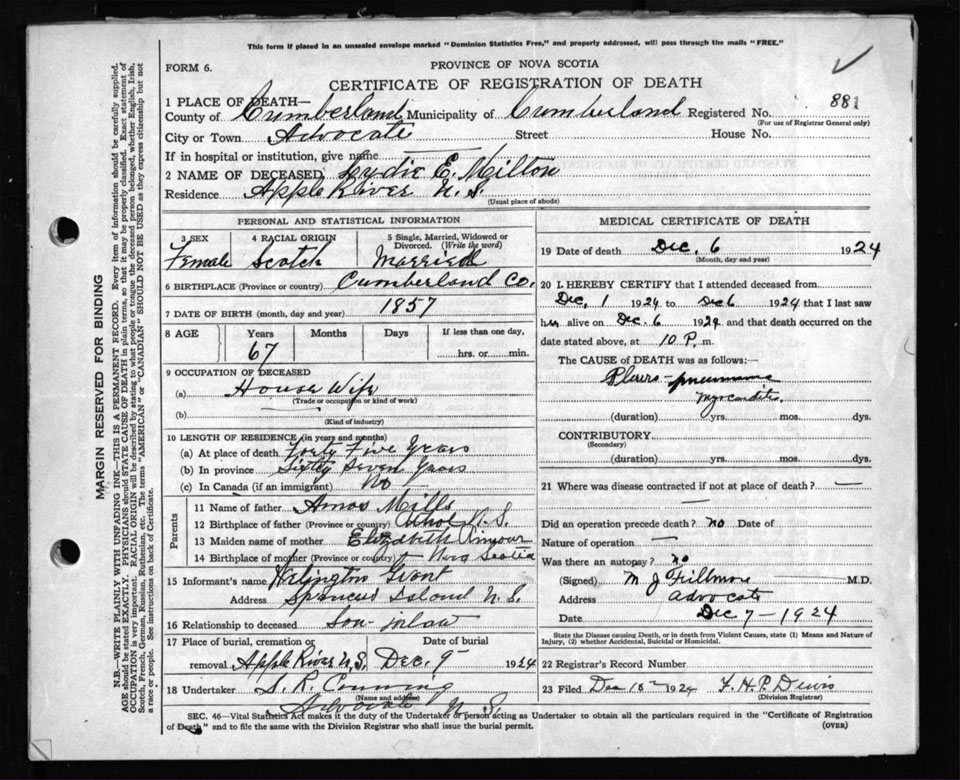 This form if placed in an unsealed envelope marked "Dominion Statistics Free," and properly addressed, will pass through the mails "FREE."
FORM 6.
PROVINCE OF NOVA SCOTIA
CERTIFICATE OF REGISTRATION OF DEATH
1 PLACE OF DEATH—
County of Cumberland Municipality of Cumberland Registered No. 881
(For use of Registrar General only)
City or Town Advocate Street House No.
If in hospital or institution, give name
2 NAME OF DECEASED Lydie E. Milton
Residence Apple River N.S
(Usual place of abode)
PERSONAL AND STATISTICAL INFORMATION
3 SEX 4 RACIAL ORIGIN 5 Single, Married, Widowed or Divorced. (Write the word)
Female Scotch Married
6 BIRTHPLACE (Province or country) Cumberland Co.
7 DATE OF BIRTH (month, day and year) 1857
8 AGE Years Months Days If less than one day,
67 hrs. or min.
9 OCCUPATION OF DECEASED
(a) House Wife
(Trade or occupation or kind of work)
(b)
(Kind of industry)
10 LENGTH OF RESIDENCE (in years and months)
(a) At place of death Forty Five Years
(b) In province Sixty Seven Years
(c) In Canada (if an immigrant) No
Parents
11 Name of father Amos Mills
12 Birthplace of father (Province or country) Athol N.S.
13 Maiden name of mother Elizabeth
14 Birthplace of mother (Province or country) Nova Scotia
15 Informant's name Grant
Address Spencers Island N.S.
16 Relationship to deceased Son-inlaw
17 Place of burial, cremation or Date of burial
removal Apple River N.S. Dec. 9 1924
18 Undertaker S. R.
(Name and address)
Advocate N.S.
MEDICAL CERTIFICATE OF DEATH
19 Date of death Dec. 6 1924
(Month, day and year)
20 I HEREBY CERTIFY that I attended deceased from
Dec. 1 1924 to Dec 6 1924 that I last saw
her alive on Dec. 6 1924 and that death occurred on the
date stated above, at 10 P. m.
The CAUSE OF DEATH was as follows:—
Pleuro-pneumonia
Myocarditis.
(duration) yrs. mos. dys.
CONTRIBUTORY
(Secondary)
(duration) yrs. mos. dys.
21 Where was disease contracted if not at place of death? —
Did an operation precede death? no Date of
Nature of operation —
Was there an autopsy? no
(Signed) M J Fillmore M.D.
Address Advocate
Date Dec 7 - 1924
State the Disease causing Death, or in death from Violent Causes, state (1) Means and Nature of
Injury, (2) whether Accidental, Suicidal or Homicidal.
22 Registrar's Record Number
23 Filed Dec 10 1924 F. H. P. Dewis
(Division Registrar)
SEC. 46—Vital Statistics Act makes it the duty of the Undertaker or person acting as Undertaker to obtain all the particulars required in the "Certificate of Registration
of Death" and to file the same with the Division Registrar who shall issue the burial permit. (OVER)
MARGIN RESERVED FOR BINDING
N.B.—WRITE PLAINLY WITH UNFADING INK—THIS IS A PERMANENT RECORD. Every item of information should be carefully supplied.
AGE should be stated EXACTLY. PHYSICIANS should STATE CAUSE OF DEATH in plain terms, so that it may be properly classified. Exact statement of
OCCUPATION is very important. RACIAL ORIGIN will be described by stating to what people or tongue the deceased person belonged, whether English, Irish,
Scotch, French, German, Russian, Ruthenian, etc. The terms "AMERICAN" or "CANADIAN" SHOULD NOT BE USED as they express citizenship but not
a race or people. See instructions on back of Certificate.